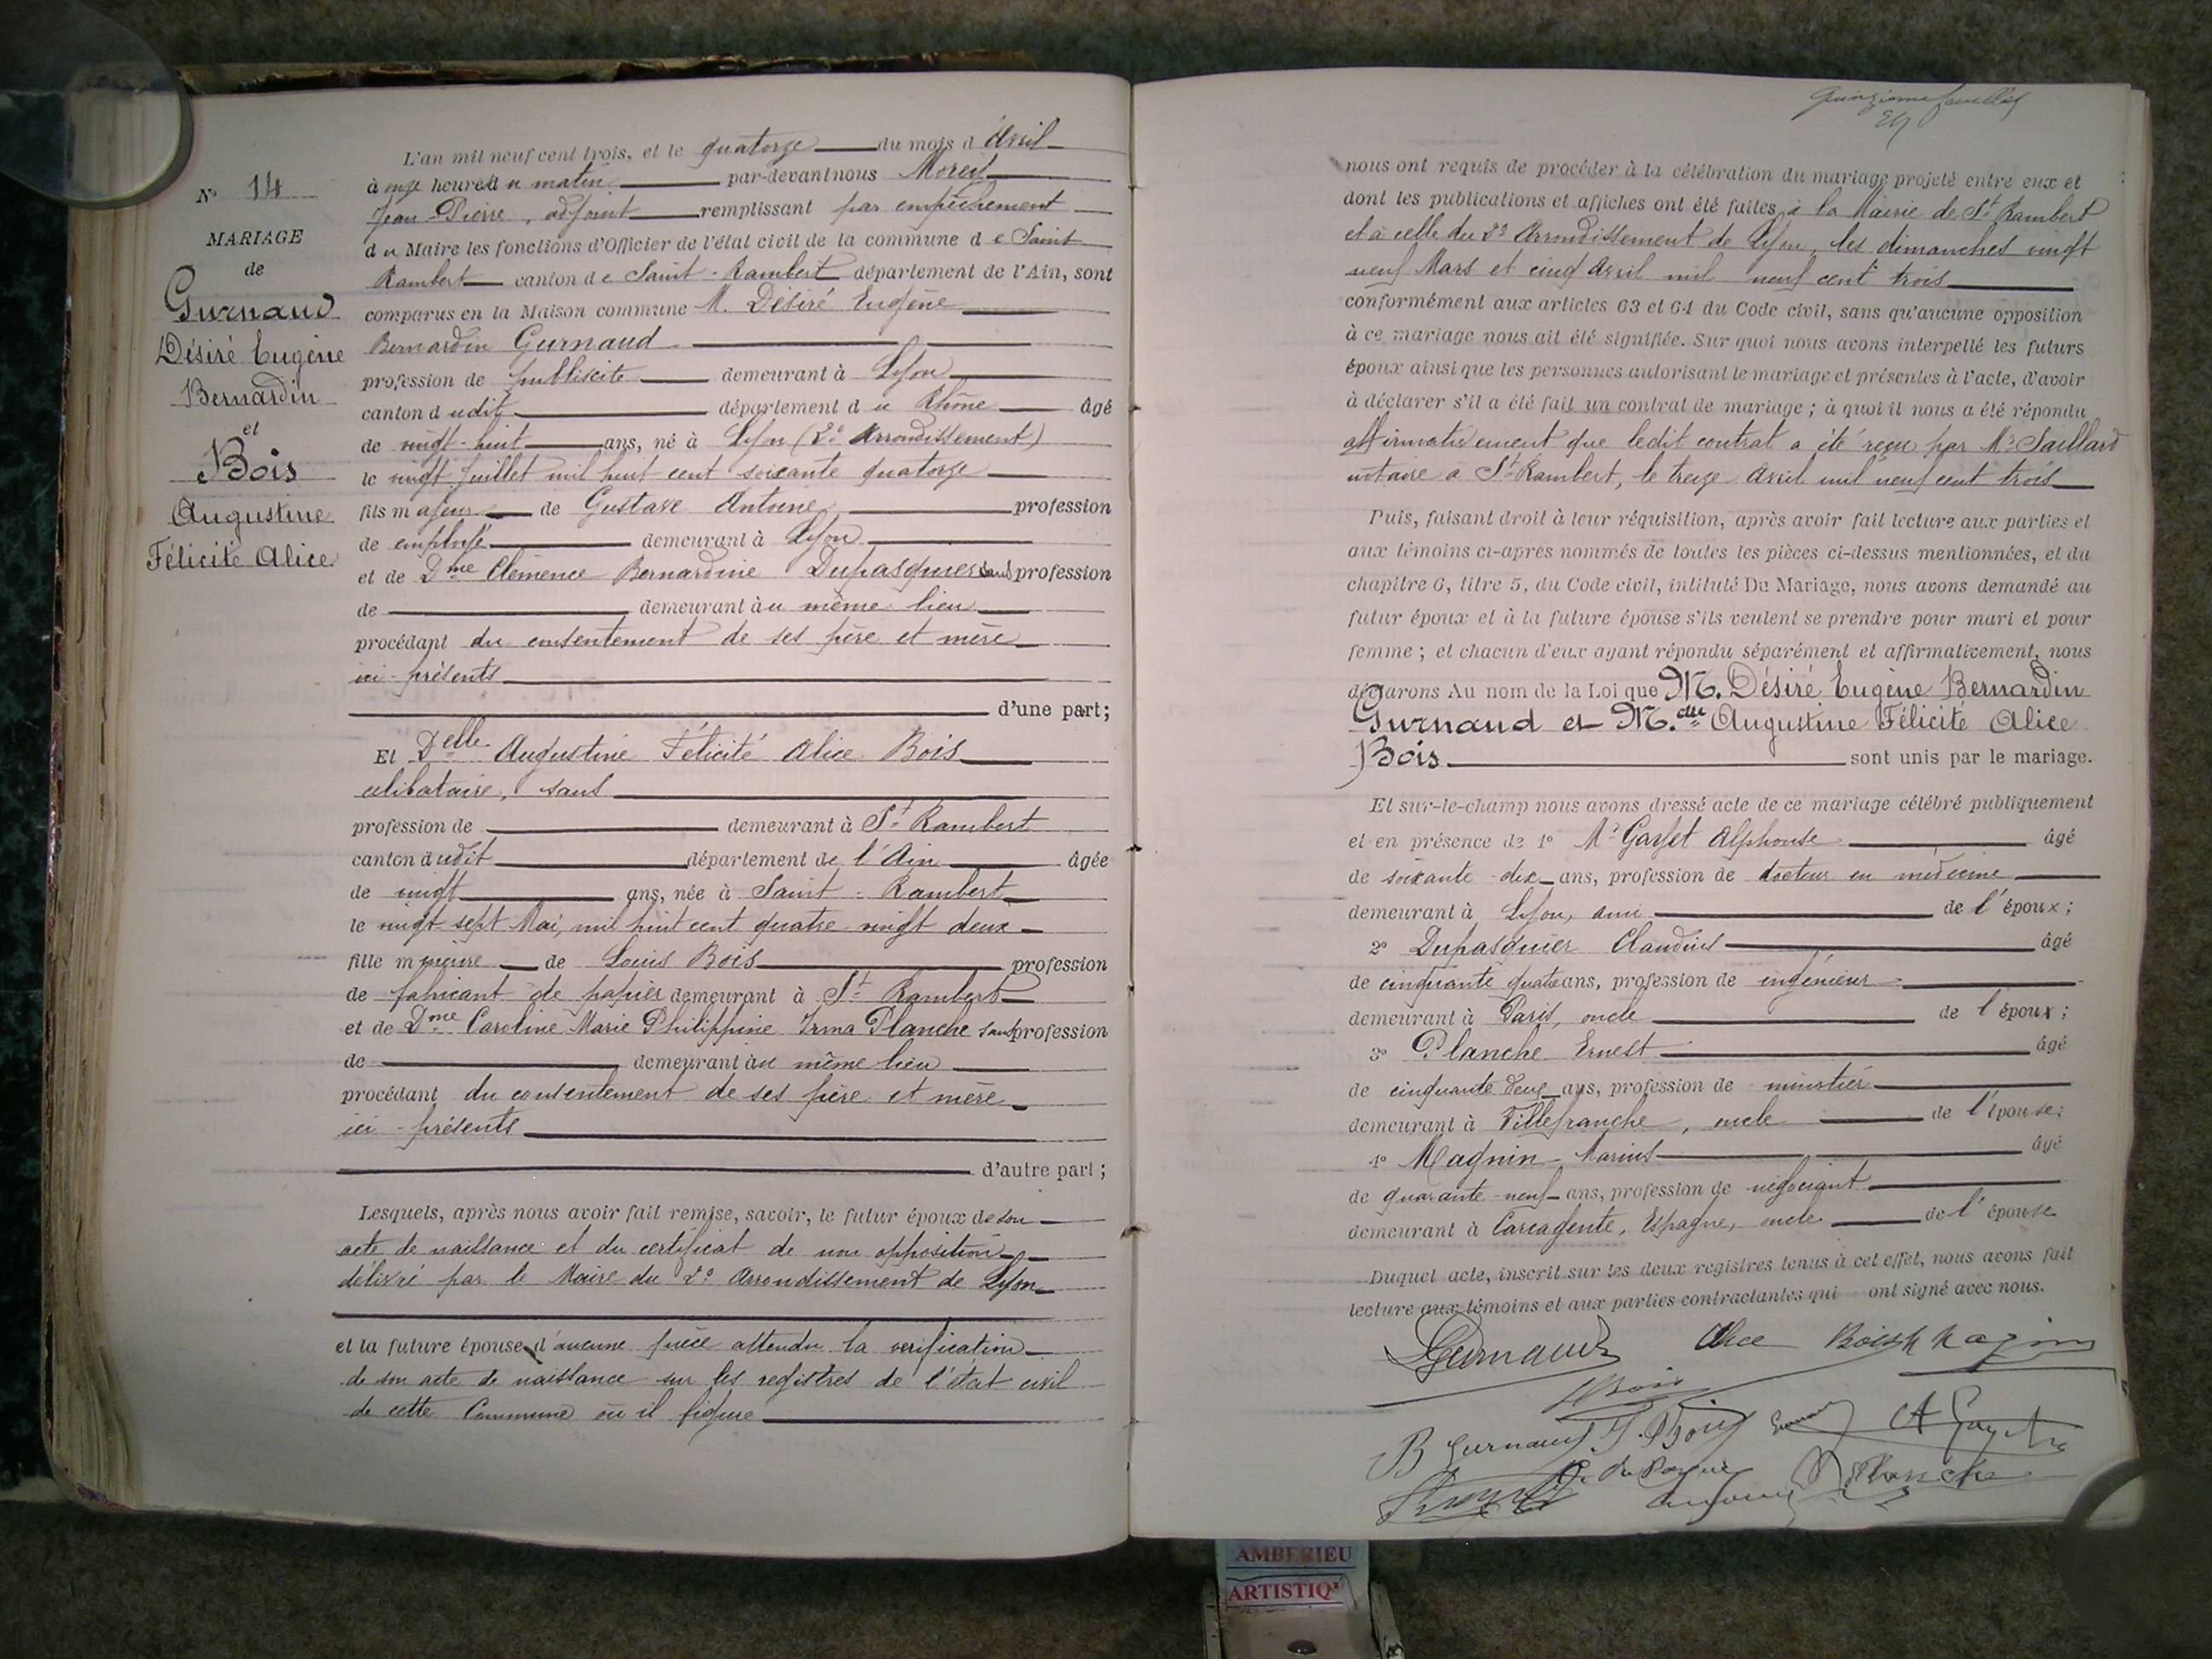 N° 14
MARIAGE
de
Gurnaud
Désiré Eugène
Bernardin
et
Bois
Augustine
Félicité Alice
L'an mil neuf cent trois, et le quatorze du mois d'Avril
à onze heures du matin par-devant nous Morel
Jean-Pierre, adjoint remplissant par empêchement
du Maire les fonctions d'Officier de l'état civil de la commune de Saint
Rambert canton de Saint-Rambert département de l'Ain, sont
comparus en la Maison commune M. Désiré Eugène
Bernardin Gurnaud
profession de publiciste demeurant à Lyon
canton dudit département du Rhône âgé
de vingt-huit ans, né à Lyon (2e Arrondissement)
le vingt juillet mil huit cent soixante quatorze
fils majeur de Gustave Antoine profession
de employé demeurant à Lyon
et de Dme Clémence Bernardine Dupasquier sans profession
de demeurant au même lieu
procédant du consentement de ses père et mère
ici-présents
d'une part;
Et Delle Augustine Félicité Alice Bois
célibataire, sans
profession de demeurant à St Rambert
canton dudit département de l'Ain âgée
de vingt ans, née à Saint-Rambert
le vingt-sept Mai, mil huit cent quatre-vingt deux
fille mineure de Louis Bois profession
de fabricant de papier demeurant à St Rambert
et de Dme Caroline Marie Philippine Irma Planche sans profession
de demeurant au même lieu
procédant du consentement de ses père et mère
ici-présents
d'autre part;
Lesquels, après nous avoir fait remise, savoir, le futur époux de son
acte de naissance et du certificat de non opposition
délivré par le Maire du 2e Arrondissement de Lyon
et la future épouse d'aucune pièce attendu la vérification
de son acte de naissance sur les registres de l'état civil
de cette Commune où il figure
nous ont requis de procéder à la célébration du mariage projeté entre eux et
dont les publications et affiches ont été faites à la Mairie de St Rambert
et à celle du 2e Arrondissement de Lyon, les dimanches vingt
neuf Mars et cinq Avril mil neuf cent trois
conformément aux articles 63 et 64 du Code civil, sans qu'aucune opposition
à ce mariage nous ait été signifiée. Sur quoi nous avons interpellé les futurs
époux ainsi que les personnes autorisant le mariage et présentes à l'acte, d'avoir
à déclarer s'il a été fait un contrat de mariage; à quoi il nous a été répondu
affirmativement que ledit contrat a été reçu par Me Saillard
notaire à St Rambert, le treize Avril mil neuf cent trois
Puis, faisant droit à leur réquisition, après avoir fait lecture aux parties et
aux témoins ci-après nommés de toutes les pièces ci-dessus mentionnées, et du
chapitre 6, titre 5, du Code civil, intitulé Du Mariage, nous avons demandé au
futur époux et à la future épouse s'ils veulent se prendre pour mari et pour
femme; et chacun d'eux ayant répondu séparément et affirmativement, nous
déclarons Au nom de la Loi que M. Désiré Eugène Bernardin
Gurnaud et M.elle Augustine Félicité Alice
Bois sont unis par le mariage.
Et sur-le-champ nous avons dressé acte de ce mariage célébré publiquement
et en présence de 1° Mr Gayet Alphonse âgé
de soixante-dix ans, profession de docteur en médecine
demeurant à Lyon, ami de l'époux;
2° Dupasquier Claudius âgé
de cinquante quatre ans, profession de ingénieur
demeurant à Paris, oncle de l'époux;
3° Planche Ernest âgé
de cinquante deux ans, profession de minotier
demeurant à Villefranche, oncle de l'épouse;
4° Magnin Marius âgé
de quarante-neuf ans, profession de négociant
demeurant à Carcagente, Espagne, oncle de l'épouse
Duquel acte, inscrit sur les deux registres tenus à cet effet, nous avons fait
lecture aux témoins et aux parties contractantes qui ont signé avec nous.
Gurnaud Alice Bois
B Gurnaud A Gayet
Planche
AMBERIEU
ARTISTIQ